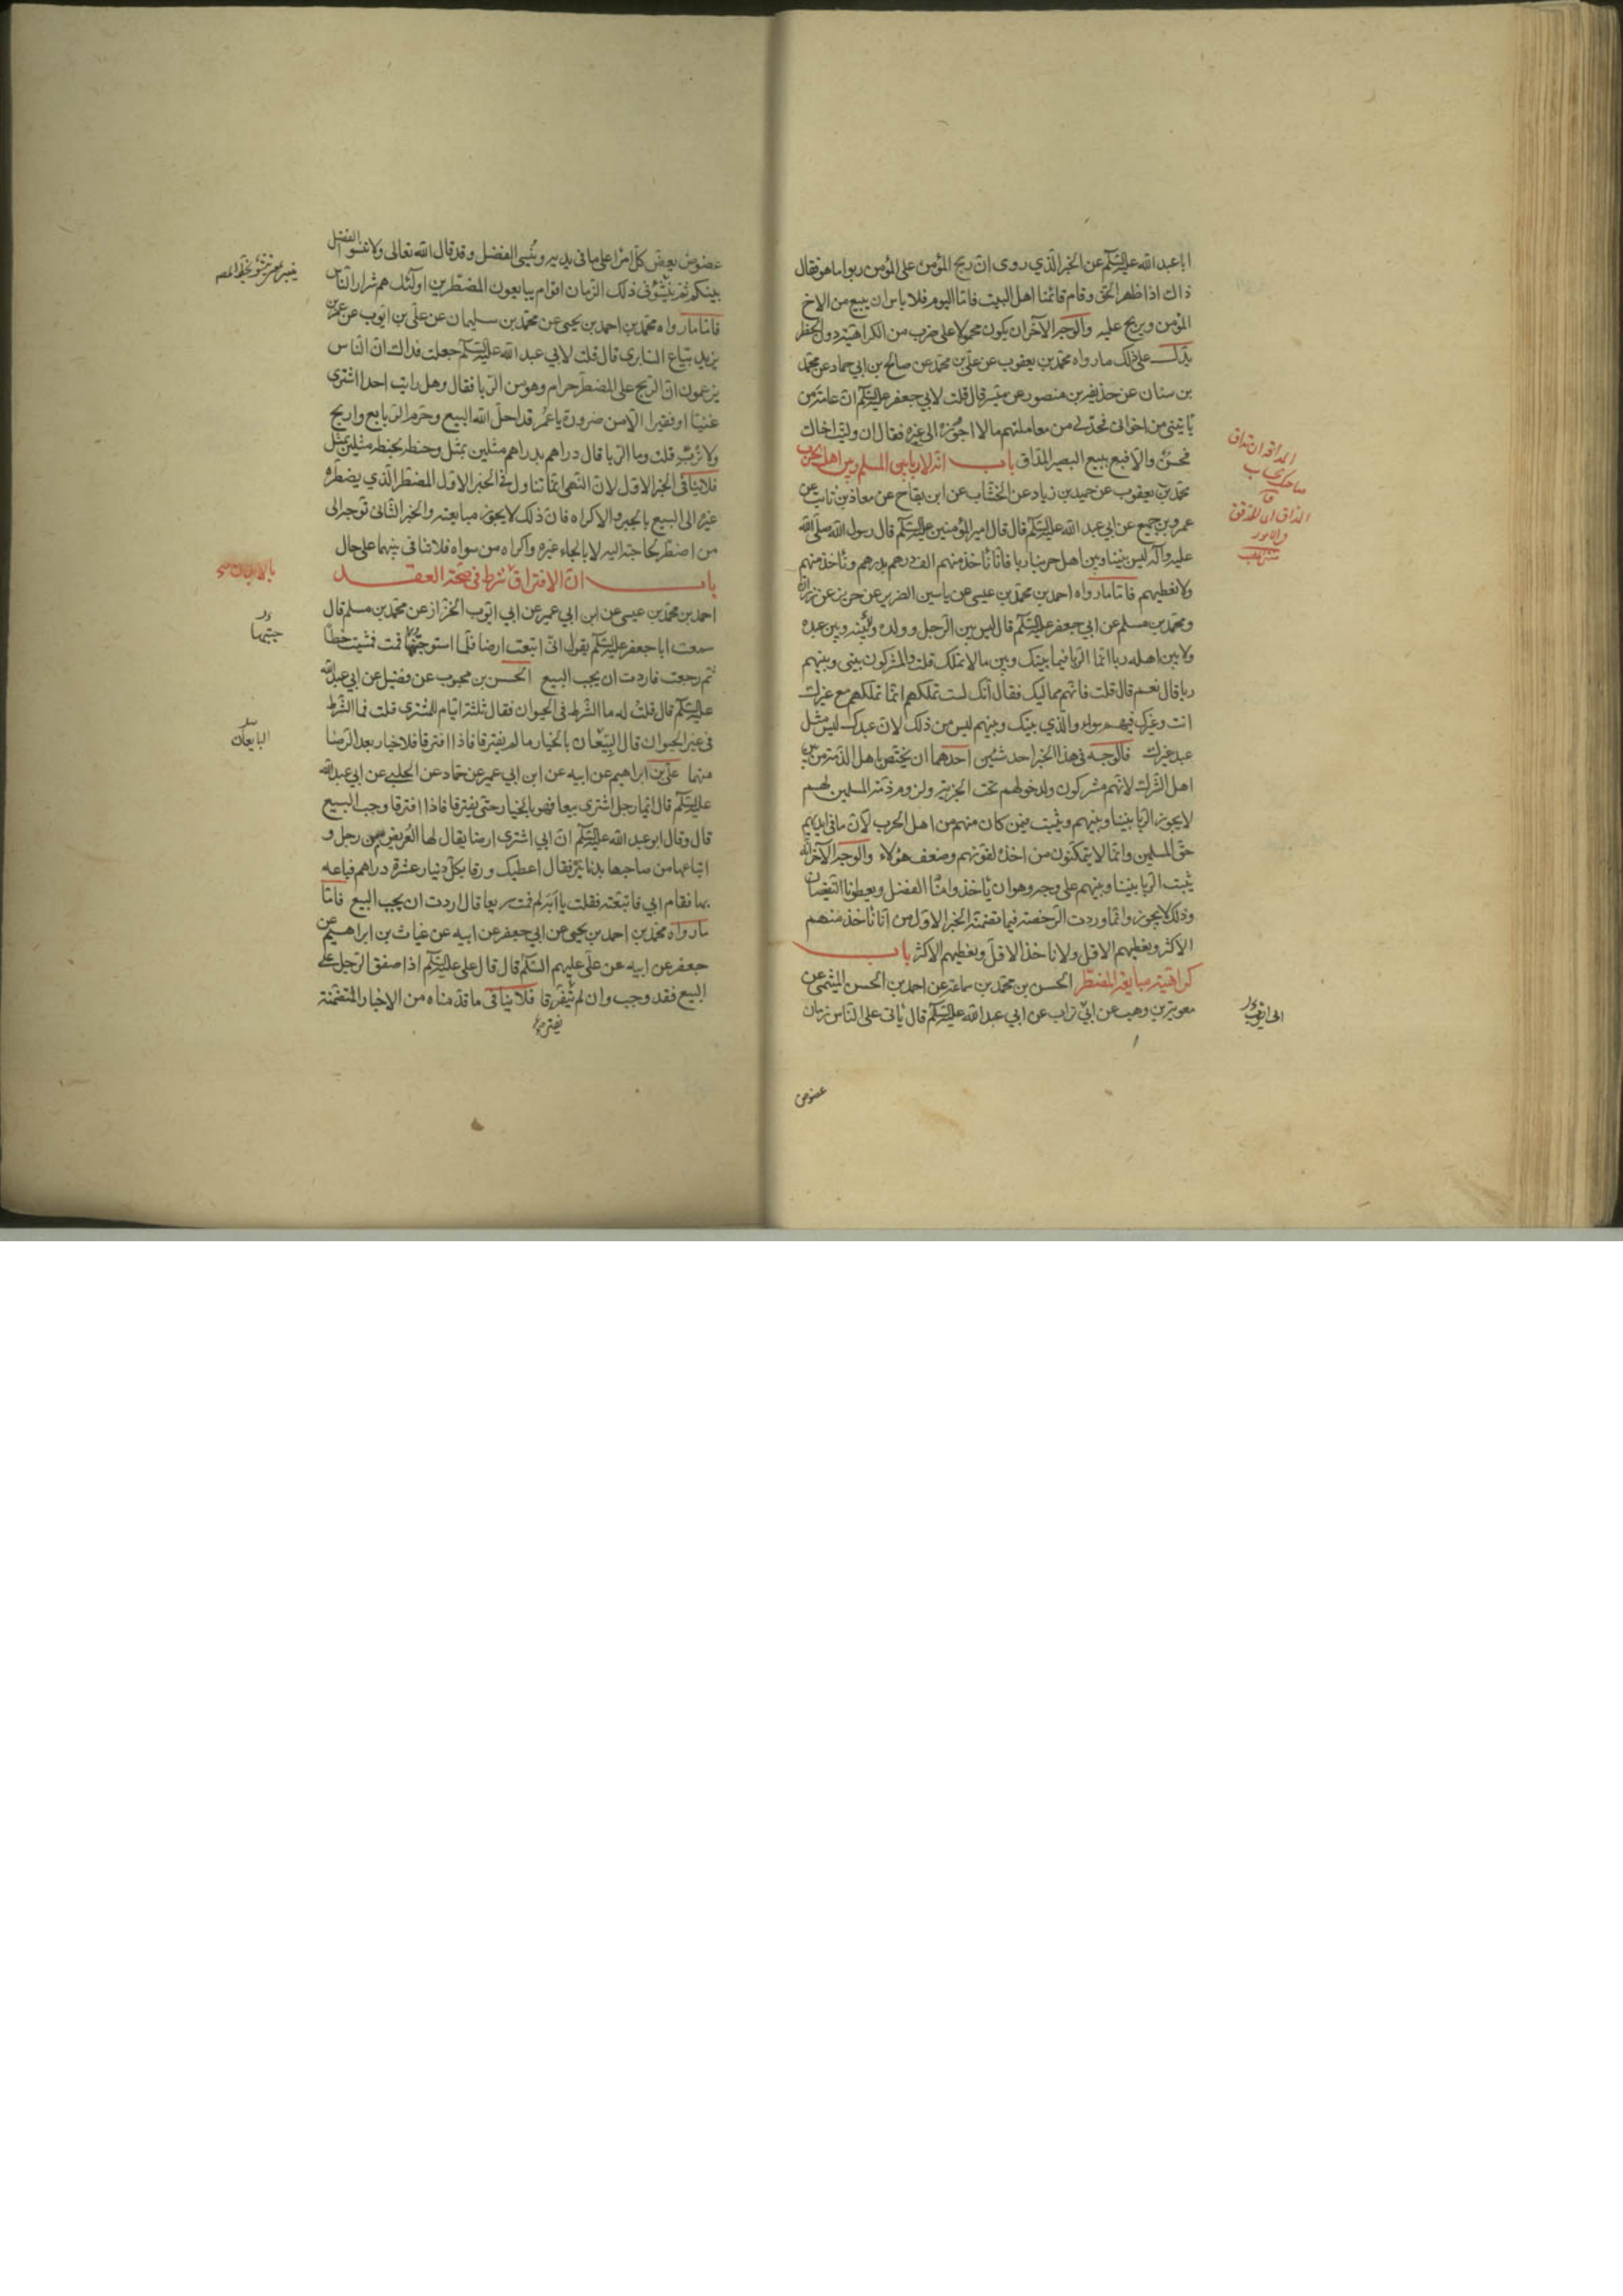 ابا عبد الله عليه السلم عن الخبر الذي روى ان ربح المؤمن على المؤمن ربوا ما هو فقال
ذاك اذا ظهر الحق وقام قائمنا اهل البيت فاما اليوم فلا باس ان يبيع من الاخ
المؤمن ويربح عليه والوجه الآخر ان يكون محمولا على ضرب من الكراهية دون الحظر
يدل على ذلك ما رواه محمد بن يعقوب عن علي بن محمد عن صالح بن ابي حماد عن محمد
بن سنان عن حذيفة بن منصور عن ميسر قال قلت لابي جعفر عليه السلم ان عامة من
ياتيني من اخواني فحد لي من معاملتهم ما لا اجوزه الى غيره فقال ان وليت اخاك
فحسن والا فبع بيع البصير المداق باب انه لا ربا بين المسلم وبين اهل الحرب
محمد بن يعقوب عن حميد بن زياد عن الخشاب عن ابن بقاح عن معاذ بن ثابت عن
عمرو بن جميع عن ابي عبد الله عليه السلم قال قال امير المؤمنين عليه السلم قال رسول الله صلى الله
عليه وآله ليس بيننا وبين اهل حربنا ربا فانا ناخذ منهم الف درهم بدرهم وناخذ منهم
ولا نعطيهم فاما ما رواه احمد بن محمد بن عيسى عن ياسين الضرير عن حريز عن زرارة
ومحمد بن مسلم عن ابي جعفر عليه السلم قال ليس بين الرجل وولده وبينه وبين عبده
ولا بين اهله ربا انما الربا فيما بينك وبين ما لا تملك قلت والمشركون بيني وبينهم
ربا قال نعم قال قلت فانهم مماليك فقال انك لست تملكهم انما تملكهم مع غيرك
انت وغيرك فيهم سواء والذي بينك وبينهم ليس من ذلك لان عبدك ليس مثل
عبد غيرك فالوجه في هذا الخبر احد شيئين احدهما ان يختص باهل الذمة من بين
اهل الشرك لانهم مشركون ولدخولهم تحت الجزية ولزوم ذمة المسلمين لهم
لا يجوز الربا بيننا وبينهم ويثبت فيمن كان منهم من اهل الحرب لان ما في ايديهم
حق المسلمين وانما لا يتمكنون من اخذه لقوتهم وضعف هؤلاء والوجه الآخر انه
يثبت الربا بيننا وبينهم على وجه وهو ان ياخذوا منا الفضل ويعطونا النقصان
وذلك لا يجوز وانما وردت الرخصة فيما تضمنه الخبر الاول من انا ناخذ منهم
الاكثر ونعطيهم الاقل ولا ناخذ الاقل ونعطيهم الاكثر باب
كراهية مبايعة المضطر الحسن بن محمد بن سماعة عن احمد بن الحسن الميثمي عن
معوية بن وهب عن ابي تراب عن ابي عبد الله عليه السلم قال ياتي على الناس زمان
عضوض
عضوض يعض كل امرء على ما في يديه وينسى الفضل وقد قال الله تعالى ولا تنسوا الفضل
بينكم ثم ينشؤ في ذلك الزمان اقوام يبايعون المضطرين اولئك هم شرار الناس
فاما ما رواه محمد بن احمد بن يحيى عن محمد بن سليمان عن علي بن ايوب عن عمر بن
يزيد بياع السابري قال قلت لابي عبد الله عليه السلم جعلت فداك ان الناس
يزعمون ان الربح على المضطر حرام وهو من الربا فقال وهل رايت احدا اشترى
غنيا او فقيرا الا من ضرورة يا عمر قد احل الله البيع وحرم الربا بع واربح
ولا ترب قلت وما الربا قال دراهم بدراهم مثلين بمثل وحنطة بحنطة مثلين بمثل
فلا ينافي الخبر الاول لان النهي انما تناول في الخبر الاول المضطر الذي يضطره
غيره الى البيع بالجبر والاكراه فان ذلك لا يجوز مبايعته والخبر الثاني توجه الى
من اضطر بحاجته اليه لا بالجاء غيره واكراه من سواه فلا تنافي بينهما على حال
باب ان الافتراق شرط في صحة العقد
احمد بن محمد بن عيسى عن ابن ابي عمير عن ابي ايوب الخزاز عن محمد بن مسلم قال
سمعت ابا جعفر عليه السلم يقول اني ابتعت ارضا فلما استوجبتها قمت فمشيت خطا
ثم رجعت فاردت ان يجب البيع الحسن بن محبوب عن فضيل عن ابي عبد الله
عليه السلم قال قلت له ما الشرط في الحيوان فقال ثلثة ايام للمشتري قلت فما الشرط
في غير الحيوان قال البيعان بالخيار ما لم يفترقا فاذا افترقا فلا خيار بعد الرضا
منهما علي بن ابراهيم عن ابيه عن ابن ابي عمير عن حماد عن الحلبي عن ابي عبد الله
عليه السلم قال ايما رجل اشترى بيعا فهو بالخيار حتى يفترقا فاذا افترقا وجب البيع
قال وقال ابو عبد الله عليه السلم ان ابي اشترى ارضا يقال لها العريض من رجل و
ابتاعها من صاحبها بدنانير فقال اعطيك ورقا بكل دينار عشرة دراهم فباعه
بها فقام ابي فاتبعته فقلت يا ابه لم قمت سريعا قال اردت ان يجب البيع فاما
ما رواه محمد بن احمد بن يحيى عن ابي جعفر عن ابيه عن غياث بن ابراهيم عن
جعفر عن ابيه عن علي عليهم السلم قال قال علي عليه السلم اذا صفق الرجل على
البيع فقد وجب وان لم يفترقا فلا ينافي ما قدمناه من الاخبار المتضمنة
البايعان